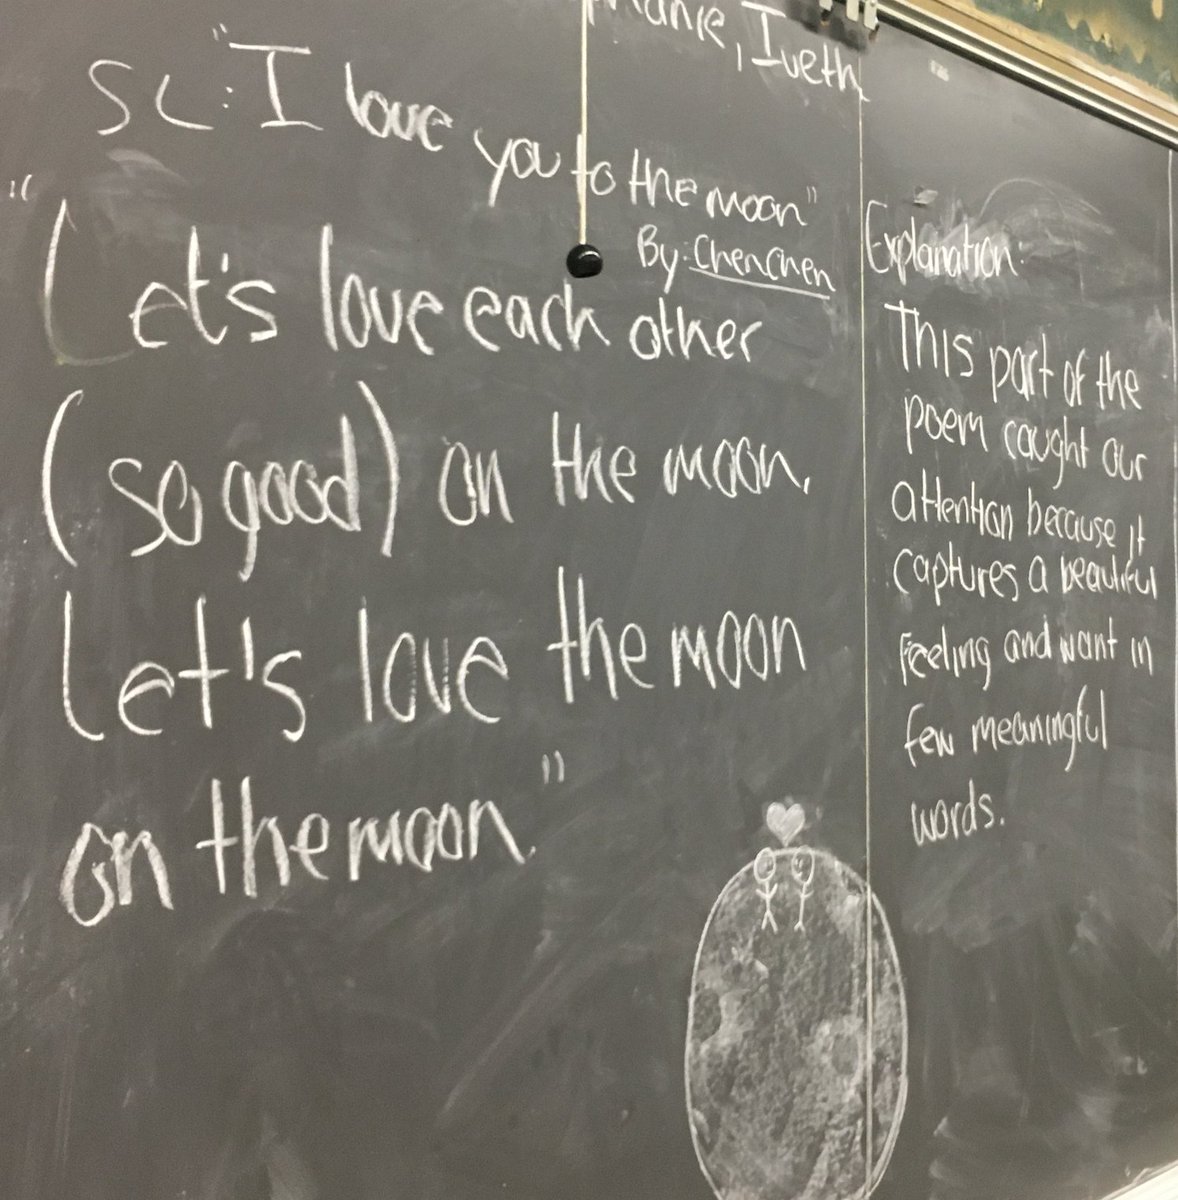 , Iveth
SC: "I love you to the moon"
By: ChenChen
"Let's love each other
(so good) on the moon.
Let's love the moon
on the moon."
Explanation:
This part of the
poem caught our
attention because it
captures a beautiful
feeling and want in
few meaningful
words.